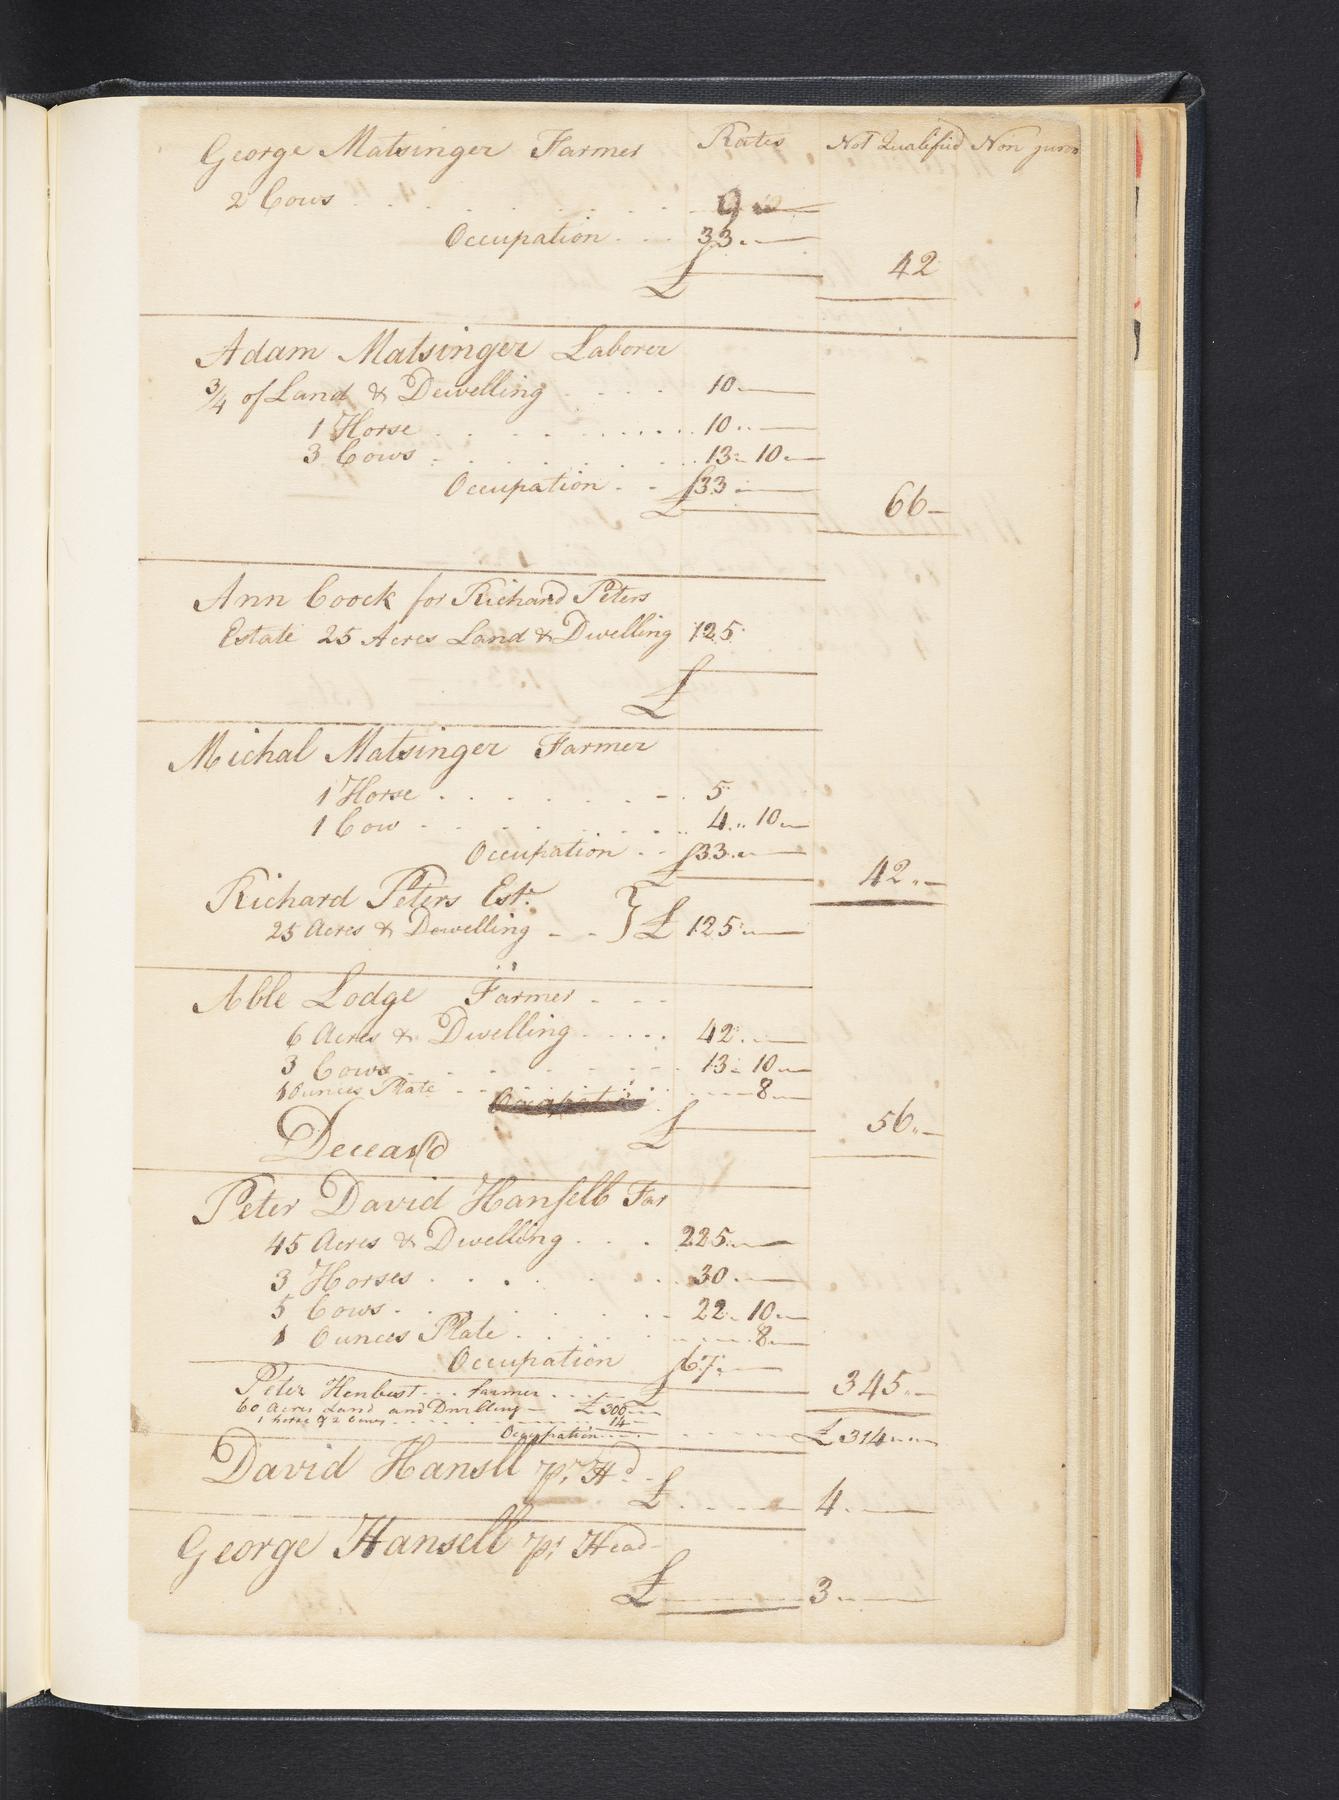 George Matsinger Farmer Rates Not Qualified Non juror
2 Cows . . . . . . . . 9
Occupation . . . 33..—
£ 42
Adam Matsinger Laborer
3/4 of Land & Dewelling . . . . 10.—
1 Horse . . . . . . . . . 10..—
3 Cows . . . . . . . . 13.. 10.—
Occupation . . 33.—
£ 66—
Ann Coock for Richard Peters
Estate 25 Acres Land & Dwelling 125
£
Michal Matsinger Farmer
1 Horse . . . . . . . 5
1 Cow . . . . . . . 4.. 10.—
Occupation . . 33..—
£ 42..—
Richard Peters Est.
25 Acres & Dewelling - - } £ 125..—
Able Lodge Farmer - - -
6 Acres & Dwelling . . . . . 42..—
3 Cows . . . . . . . 13.. 10.—
1 Ounces Plate . . . . . 8.—
Deceasd £ 56..—
Peter David Hansell Far
45 Acres & Dwelling . . . 225..—
3 Horses . . . . . . 30.—
5 Cows . . . . . . . 22.. 10.—
1 Ounces Plate . . . . . . 8.—
Occupation 67.—
£ 345..—
Peter Henbest . . . farmer . . . .
60 Acres Land and Dwelling — £ 300.—
1 horse & 2 Cows . . . . . . 14—
Occupation . . . . £ 314..—
David Hansll pr. Hd - £ . . . . 4.—
George Hansell pr. Head-
£ 3..—